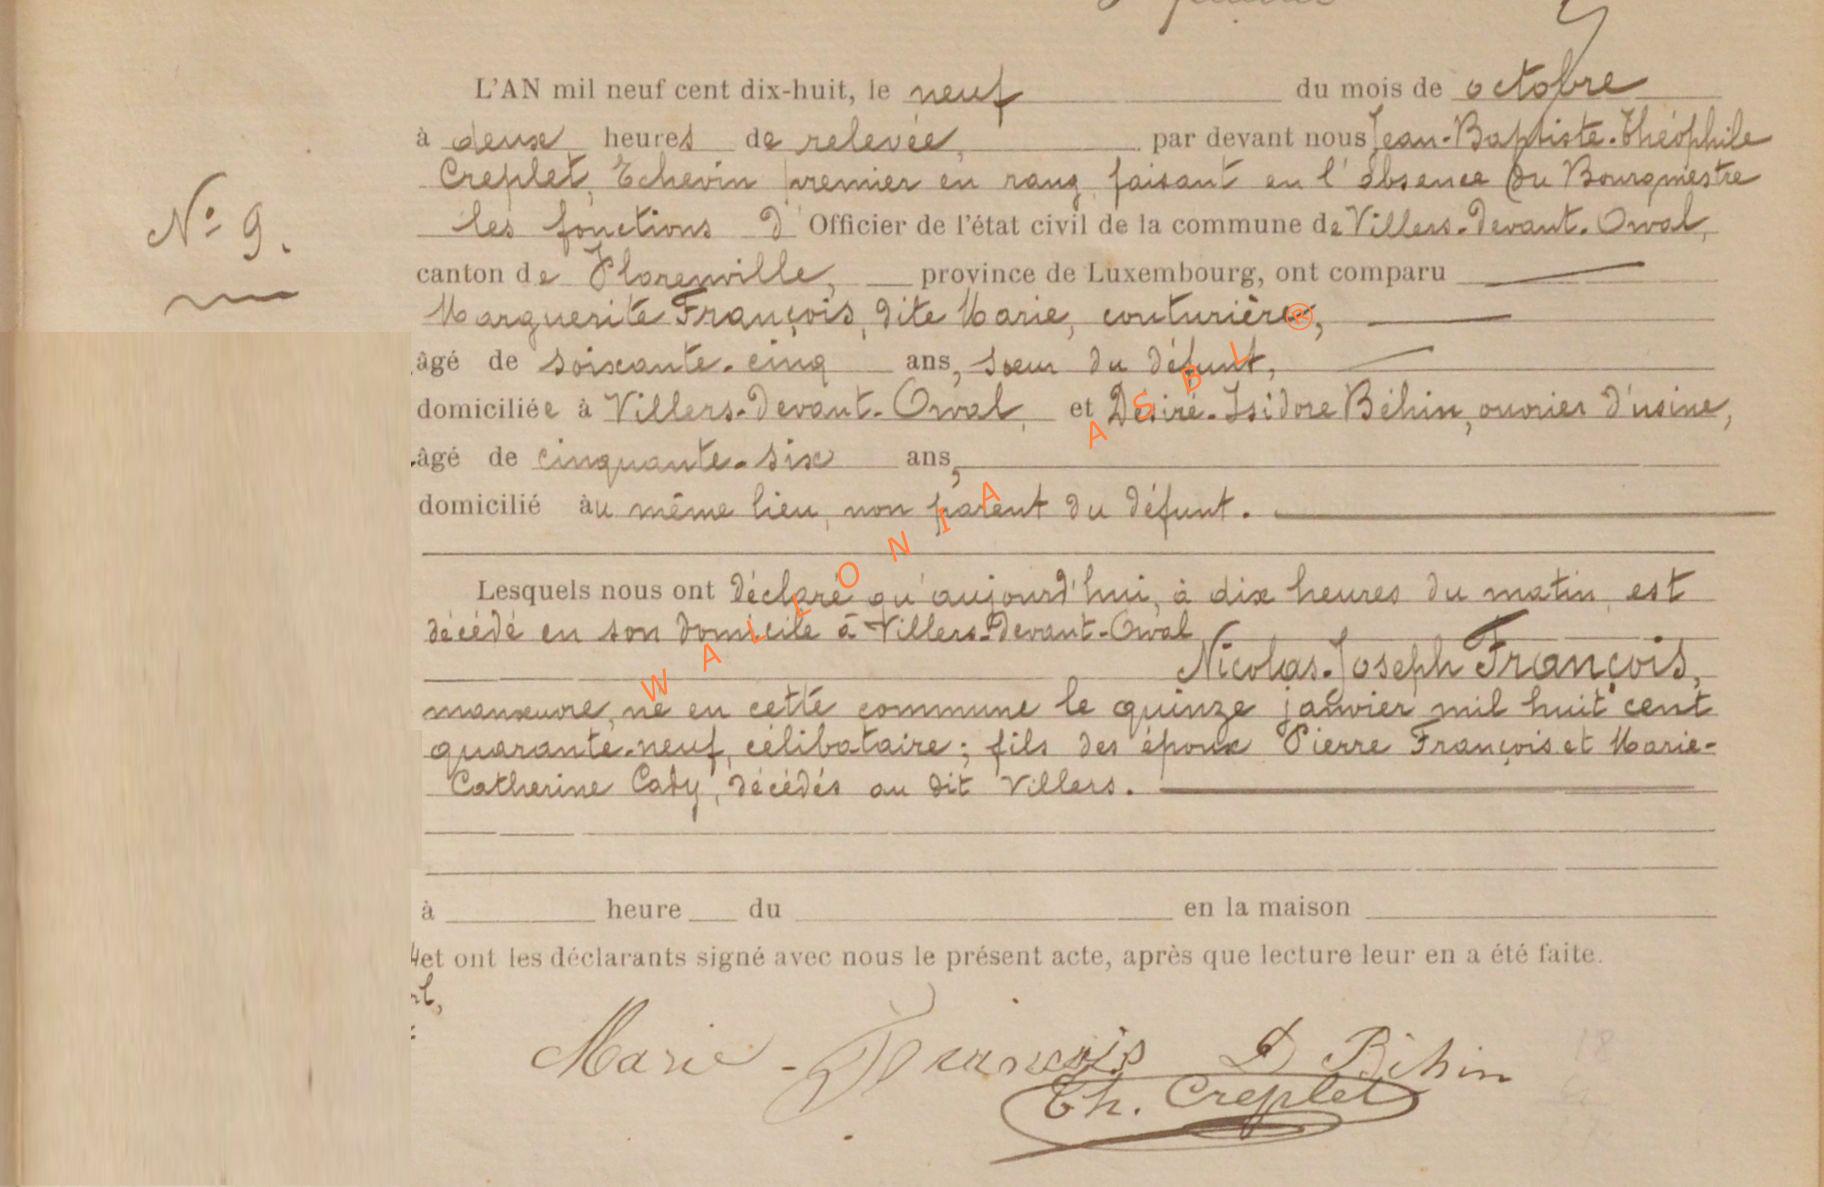 N° 9.
L'AN mil neuf cent dix-huit, le neuf du mois de octobre
à deux heures de relevée, par devant nous Jean-Baptiste-Théophile
Creplet, Echevin premier en rang, faisant en l'absence du Bourgmestre
les fonctions d'Officier de l'état civil de la commune de Villers-devant-Orval,
canton de Florenville, province de Luxembourg, ont comparu
Marguerite François, dite Marie, couturière,
âgé de soixante-cinq ans, sœur du défunt,
domiciliée à Villers-devant-Orval, et Désiré-Isidore Béhin, ouvrier d'usine,
âgé de cinquante-six ans,
domicilié au même lieu, non parent du défunt.
Lesquels nous ont déclaré qu'aujourd'hui, à dix heures du matin, est
décédé en son domicile à Villers-Devant-Orval
Nicolas-Joseph François,
manœuvre, né en cette commune le quinze janvier mil huit cent
quarante-neuf, célibataire; fils des époux Pierre François et Marie-
Catherine Cady, décédés au dit Villers.
à heure du en la maison
et ont les déclarants signé avec nous le présent acte, après que lecture leur en a été faite.
Marie - François D Bihin
Th. Creplet
WALLONIA ASBL ®